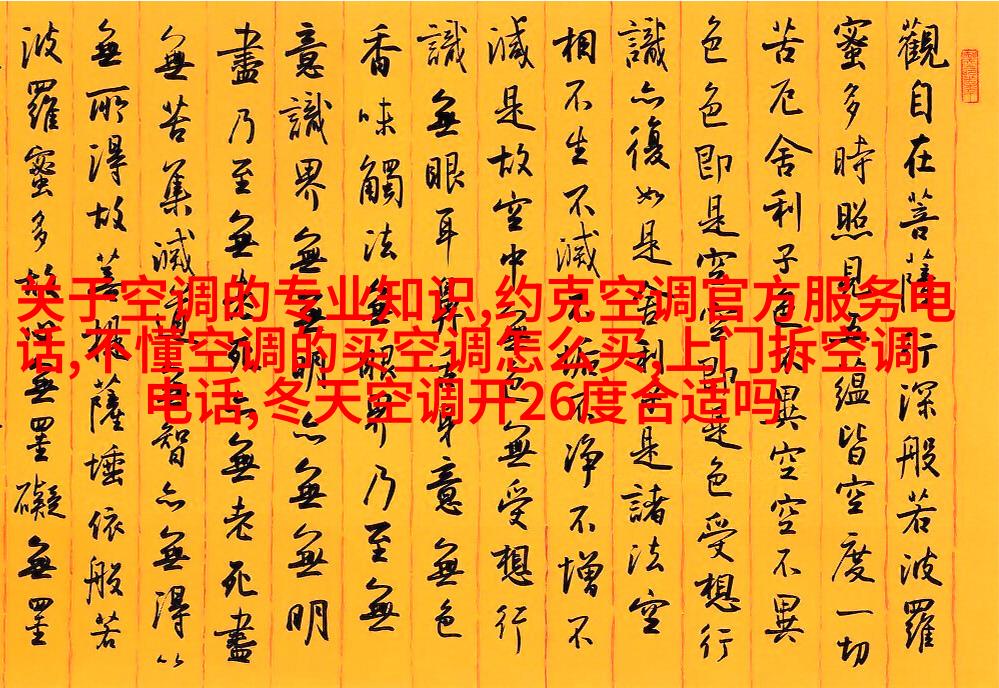 觀自在菩薩行深般若波羅
蜜多時照見五蘊皆空度一切
苦厄舍利子色不異空空不異
色色即是空空即是色受想行
識亦復如是舍利子是諸法空
相不生不滅不垢不淨不增不
減是故空中無色無受想行
識無眼耳鼻舌身意無色
香味觸法無眼界乃至無
意識界無無明亦無無明
盡乃至無老死亦無老死盡
無苦集滅道無智亦無得以
無所得故菩提薩埵依般若
波羅蜜多故心無罣礙無罣
关于空调的专业知识,约克空调官方服务电
话,不懂空调的买空调怎么买,上门拆空调
电话,冬天空调开26度合适吗